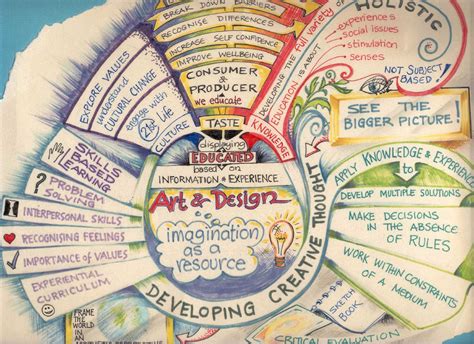 BREAK DOWN BARRIERS
RECOGNISE DIFFERENCES
INCREASE SELF CONFIDENCE
IMPROVE WELLBEING
CONSUMER
& PRODUCER
we educate
TASTE
displaying
EDUCATED
based on
INFORMATION & EXPERIENCE
Art & Design
imagination
as a
resource
DEVELOPING CREATIVE THOUGHT
EXPLORE VALUES
understand
CULTURAL CHANGE
engage with
21st C Life
CULTURE
KNOWLEDGE
EDUCATION IS ABOUT
DEVELOPING THE full variety of
HOLISTIC
experiences
social issues
stimulation
senses
NOT SUBJECT
BASED!
SEE THE
BIGGER PICTURE!
APPLY KNOWLEDGE & EXPERIENCE
to
DEVELOP MULTIPLE SOLUTIONS
MAKE DECISIONS
IN THE ABSENCE
OF RULES
WORK WITHIN CONSTRAINTS
OF A MEDIUM
SKILLS
BASED
LEARNING
? PROBLEM
SOLVING
INTERPERSONAL SKILLS
RECOGNISING FEELINGS
IMPORTANCE of VALUES
EXPERIENTIAL
CURRICULUM
FRAME
THE
WORLD
IN
AN
SKETCH
BOOK
CRITICAL EVALUATION